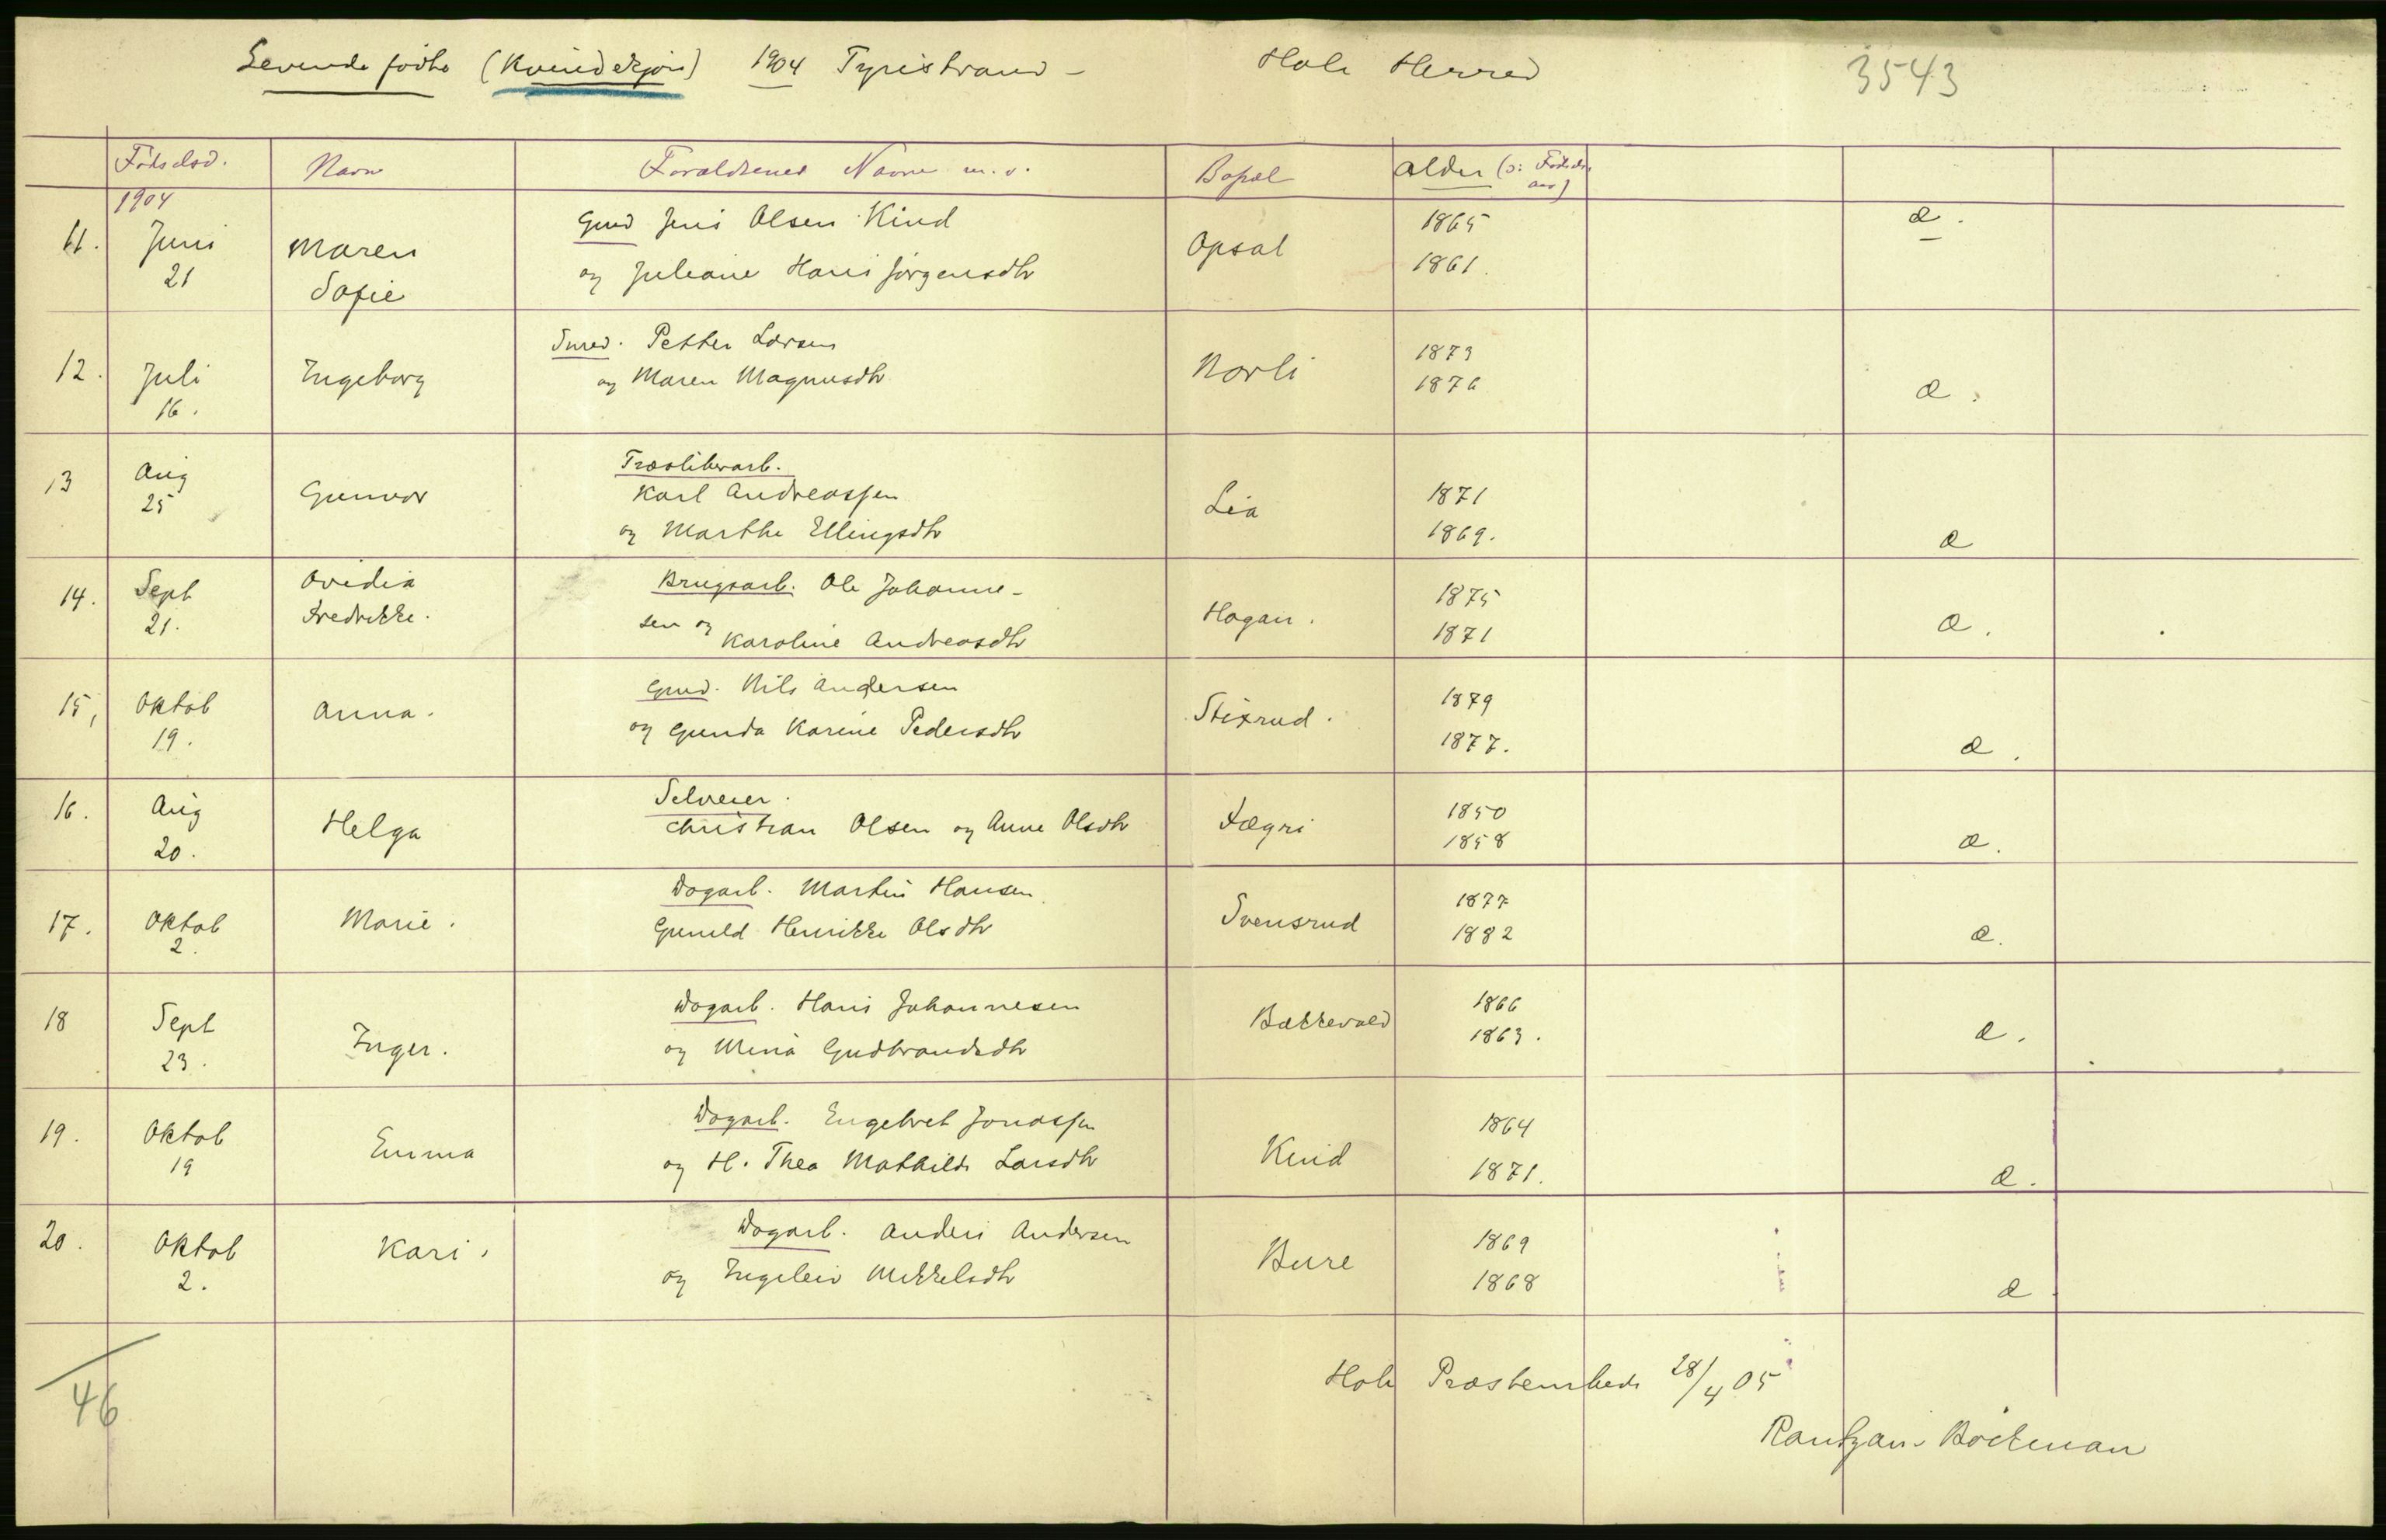 Levende fødte (Kvindekjøn) 1904 Tyristrand - Hole Herred 3543
Fødselsd. Navn Forældrenes Navne m.v. Bopæl Alder (ɔ: Fødsels-
aar)
1904
11. Juni 21 Maren Sofie Gmd Jens Olsen Kind Opsal 1865 æ.
og Juliane Hans Jørgensdtr 1861.
12. Juli 16. Ingeborg Smed. Petter Larsen Norli 1873 æ.
og Maren Magnusdtr 1876
13 Aug 25 Gunvor Træsliberarb. Lia
Karl Andreassen 1871
og Marthe Ellingsdtr 1869. æ
14. Sept 21. Ovidia Fredrikke. Brugsarb. Ole Johanne- Hagan. 1875 æ.
sen og Karoline Andreasdtr 1871
15, Oktob 19. Anna. Gmd. Nils Andersen Stixrud. 1879
og Gunda Karine Pedersdtr 1877. æ.
16. Aug 20. Helga Selveier. Fægri
Christian Olsen og Anne Olsdtr 1850
1858 æ.
17. Oktob 2. Marie. Dagarb. Martin Hansen Svensrud 1877
Gunild Henrikke Olsdtr 1882 æ.
18 Sept 23. Inger. Dagarb. Hans Johannesen Bakkevold 1866
og Mina Gudbrandsdtr 1863. æ.
19. Oktob 19 Emma Dagarb. Engebret Jonassen Kind 1864
og H. Thea Mathilde Larsdtr 1871. æ.
20. Oktob 2. Kari. Dagarb. Anders Andersen Bure 1869
og Ingeleiv Mikkelsdtr 1868 æ
46
Hole Præsteembede 28/4 05
Rantzau-Bøckman